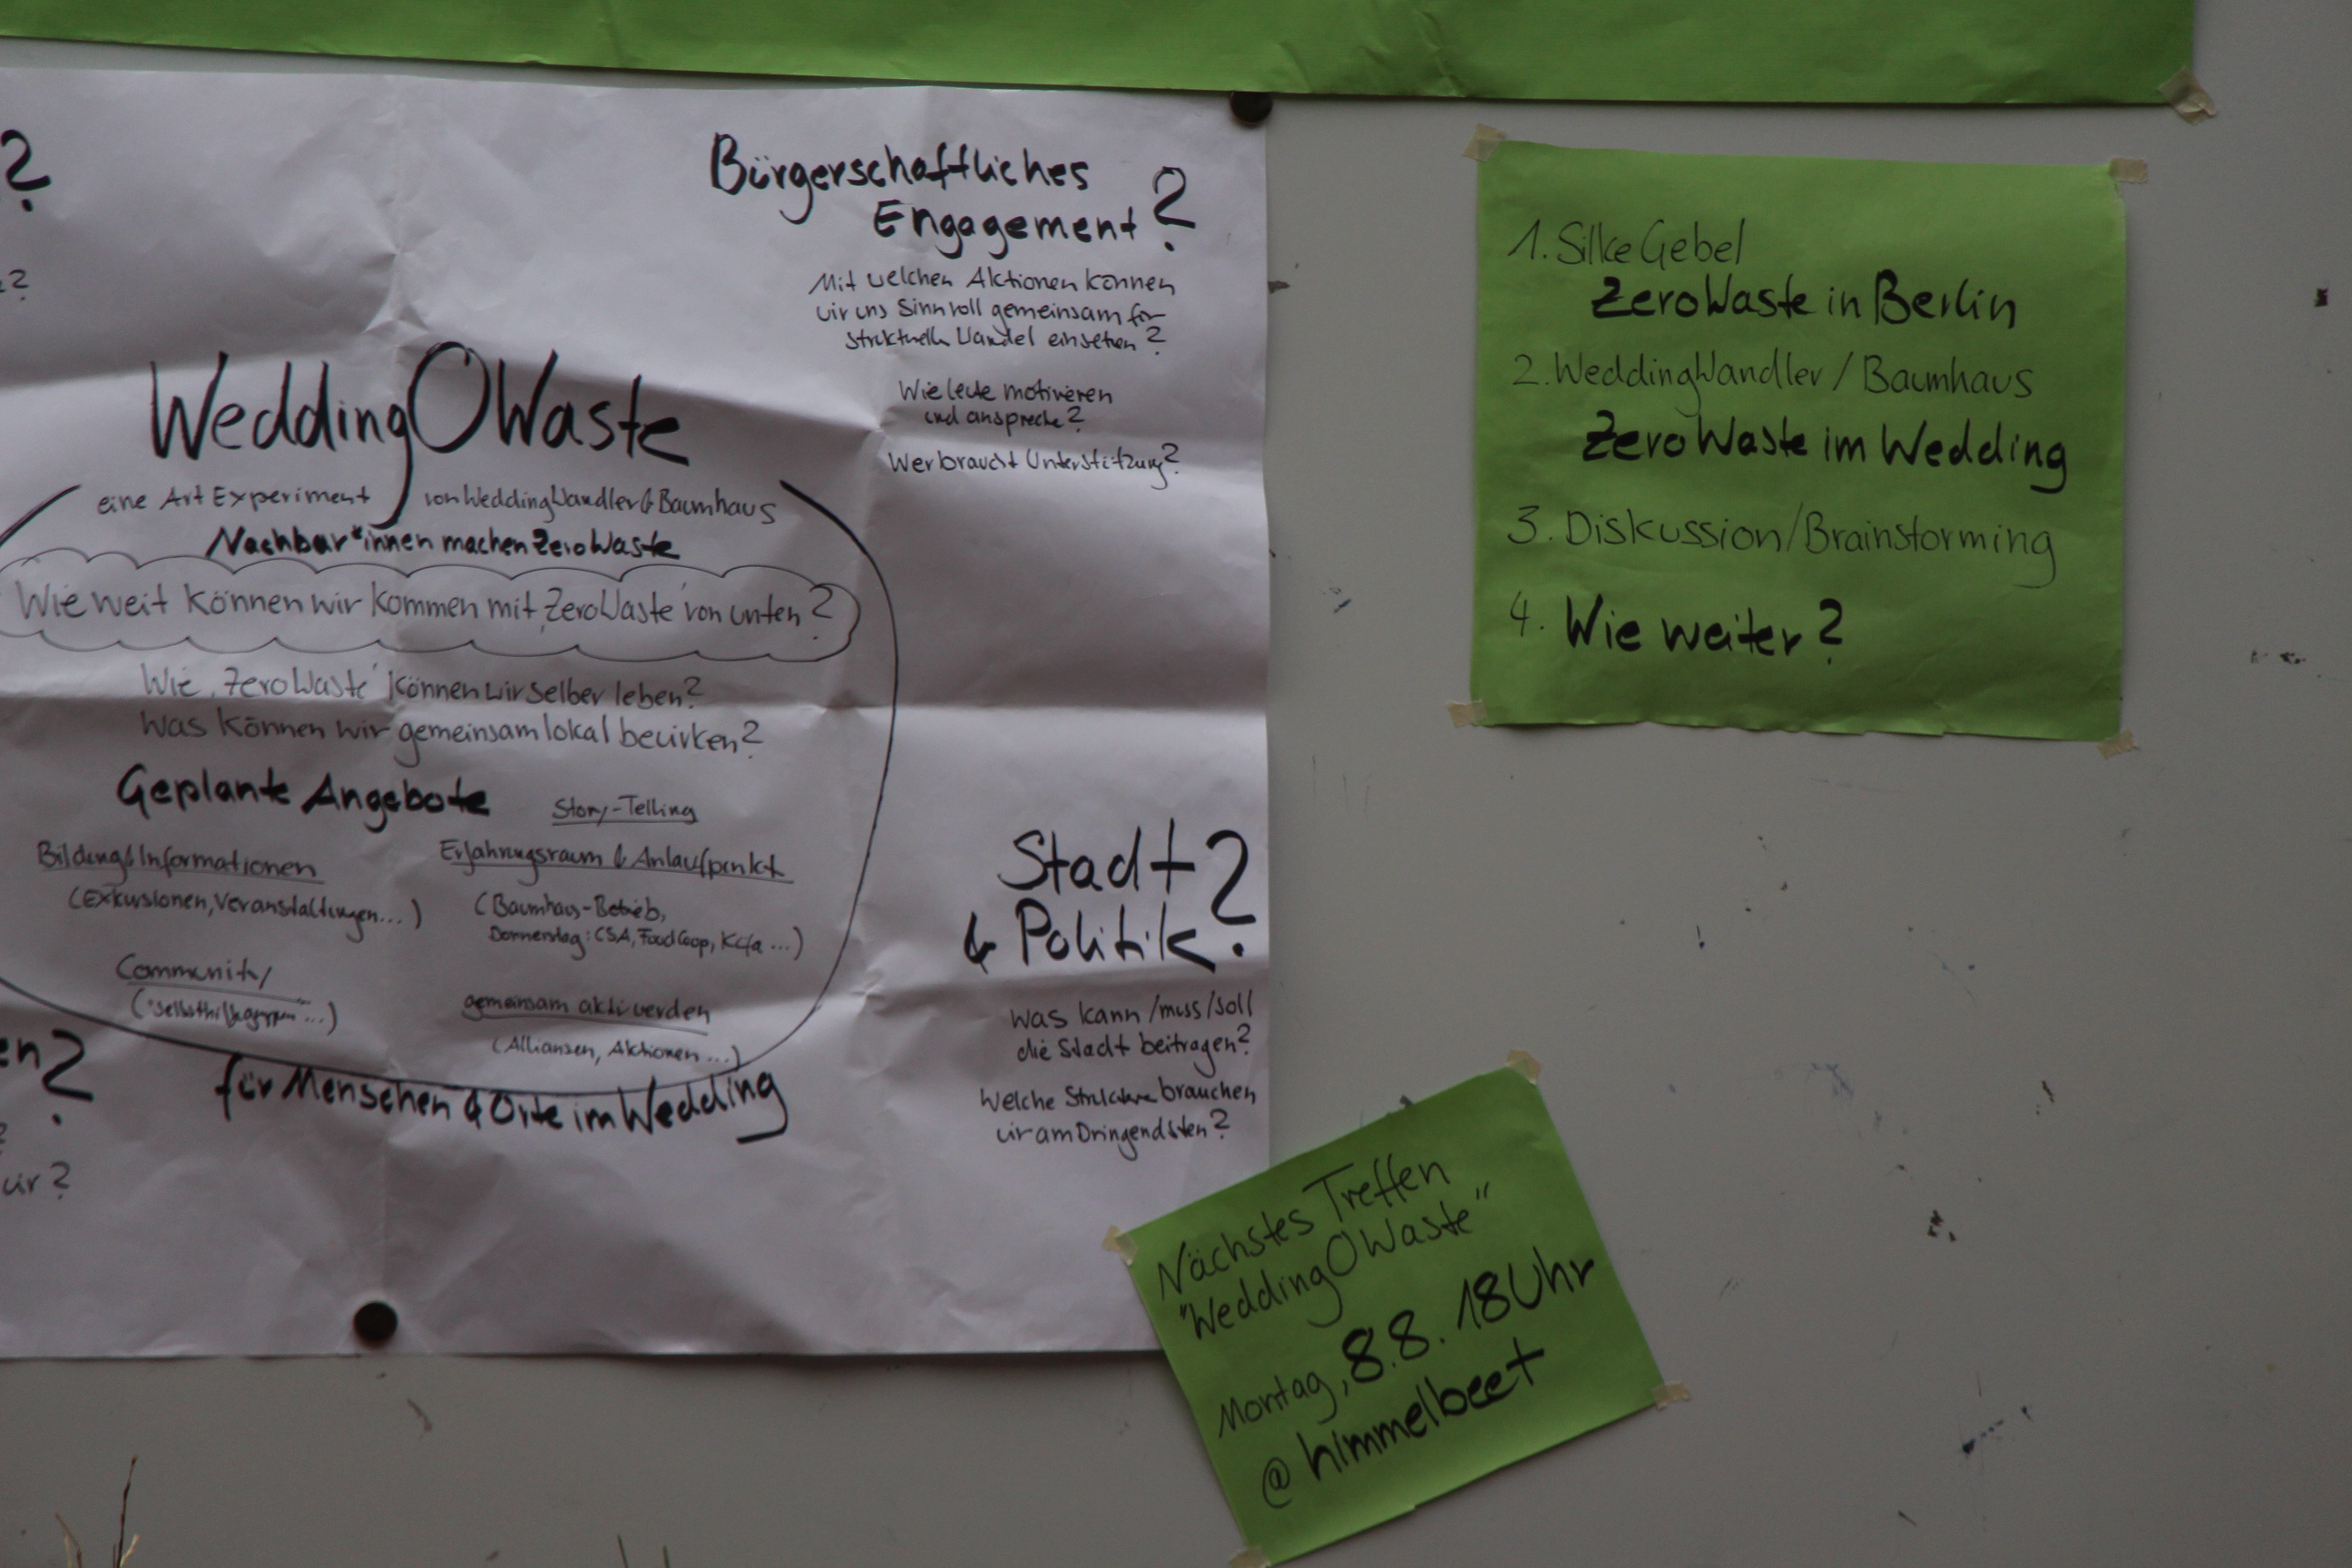 ?
?
Bürgerschaftliches
Engagement?
Mit welchen Aktionen können
wir uns Sinnvoll gemeinsam für
strukturelle Wandel einsetzen?
Wie leute motivieren
und anspreche?
Wer braucht Unterstützung?
Wedding0Waste
eine Art Experiment von WeddingWandler & Baumhaus
Nachbar*innen machen ZeroWaste
Wie weit können wir kommen mit ‚ZeroWaste' von unten?
Wie ‚ZeroWaste' können wir selber leben?
Was können wir gemeinsam lokal bewirken?
Geplante Angebote
Story-Telling
Bildung & Informationen
(Exkursionen, Veranstaltungen...)
Erfahrungsraum & Anlaufpunkt
(Baumhaus-Betrieb,
Donnerstag: CSA, FoodCoop, Küfa...)
Community
("Selbsthilfegruppen"...)
gemeinsam aktiv werden
(Allianzen, Aktionen...)
für Menschen & Orte im Wedding
en?
?
wir?
Stadt
& Politik?
Was kann/muss/soll
die Stadt beitragen?
Welche brauchen
wir am Dringendsten?
1. Silke Gebel
ZeroWaste in Berlin
2. WeddingWandler / Baumhaus
ZeroWaste im Wedding
3. Diskussion/Brainstorming
4. Wie weiter?
Nächstes Treffen
"Wedding0Waste"
Montag, 8.8. 18Uhr
@himmelbeet